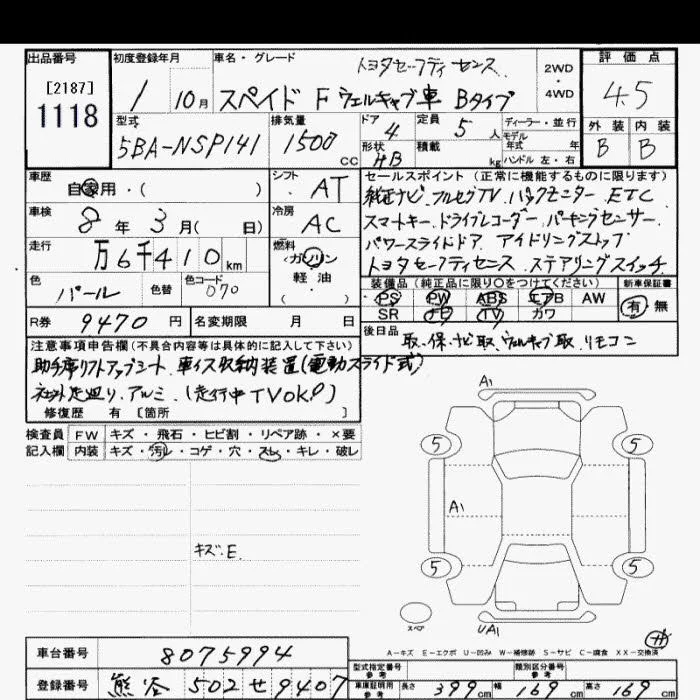 出品番号
[2187]
1118
初度登録年月
1 10月
車名・グレード
トヨタセーフティセンス
スペイド F ウェルキャブ車 Bタイプ
2WD
4WD
評価点
4.5
外装 内装
B B
型式
5BA-NSP141
排気量
1500 CC
ドア
4
形状
HB
定員
5 人
積載
kg
ディーラー・並行
モデル年式 年
ハンドル 左・右
車歴
自家用・( )
シフト
AT
車検
8年 3月( 日)
冷房
AC
走行
万6千410km
燃料
ガソリン
軽油
( )
色
パール
色替
色コード
070
R券 9470円
名変期限 月 日
セールスポイント(正常に機能するものに限ります)
純正ナビ.フルセグTV.バックモニター.ETC
スマートキー.ドライブレコーダー.パーキングセンサー.
パワースライドドア.アイドリングストップ
トヨタセーフティセンス.ステアリングスイッチ
装備品(純正品に限り○をつけてください)
PS PW ABS エアB AW
SR ナビ TV カワ
新車保証書
有・無
後日品
取.保.ナビ取.ウェルキャブ取.リモコン
注意事項申告欄(不具合内容等は具体的に記入して下さい)
助手席リフトアップシート.車イス収納装置(電動スライド式)
社外足廻り.アルミ.(走行中TVOK)
修復歴 有[箇所 ]
検査員記入欄
FW キズ・飛石・ヒビ割・リペア跡・×要
内装 キズ・汚れ・コゲ・穴・スレ・キレ・破レ
キズ.E.
A1
5 5
A1
5 5
スペア
UA1
A-キズ E-エクボ U-凹み W-補修跡 S-サビ C-腐食 XX-交換済
車台番号 8075994
登録番号 熊谷 502 せ 9407
型式指定番号
参考
類別区分番号
参考
車庫証明用
参考
長さ 399cm 幅 169cm 高さ 169cm